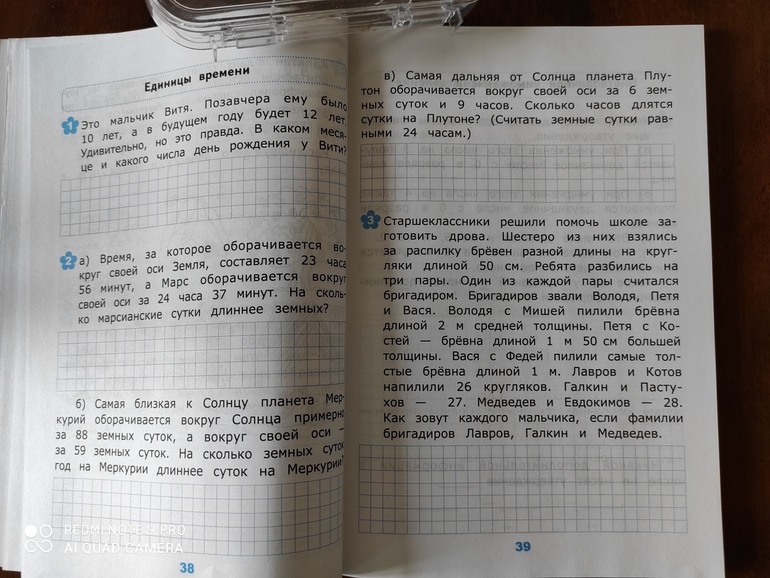 Единицы времени
1 Это мальчик Витя. Позавчера ему было
10 лет, а в будущем году будет 12 лет.
Удивительно, но это правда. В каком меся-
це и какого числа день рождения у Вити?
2 а) Время, за которое оборачивается во-
круг своей оси Земля, составляет 23 часа
56 минут, а Марс оборачивается вокруг
своей оси за 24 часа 37 минут. На сколь-
ко марсианские сутки длиннее земных?
б) Самая близкая к Солнцу планета Мер-
курий оборачивается вокруг Солнца примерно
за 88 земных суток, а вокруг своей оси –
за 59 земных суток. На сколько земных суток
год на Меркурии длиннее суток на Меркурии?
38
в) Самая дальняя от Солнца планета Плу-
тон оборачивается вокруг своей оси за 6 зем-
ных суток и 9 часов. Сколько часов длятся
сутки на Плутоне? (Считать земные сутки рав-
ными 24 часам.)
3 Старшеклассники решили помочь школе за-
готовить дрова. Шестеро из них взялись
за распилку брёвен разной длины на круг-
ляки длиной 50 см. Ребята разбились на
три пары. Один из каждой пары считался
бригадиром. Бригадиров звали Володя, Петя
и Вася. Володя с Мишей пилили брёвна
длиной 2 м средней толщины. Петя с Ко-
стей — брёвна длиной 1 м 50 см большей
толщины. Вася с Федей пилили самые тол-
стые брёвна длиной 1 м. Лавров и Котов
напилили 26 кругляков. Галкин и Пасту-
хов — 27. Медведев и Евдокимов — 28.
Как зовут каждого мальчика, если фамилии
бригадиров Лавров, Галкин и Медведев.
39
REDMI NOTE 9 PRO
AI QUAD CAMERA